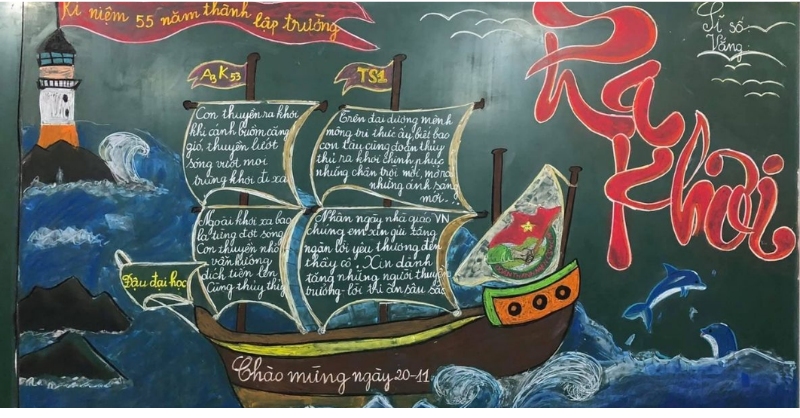 Kỉ niệm 55 năm thành lập trường
Sĩ số:
Vắng:
Ra
Khơi
A3 K53
TS1
Con thuyền ra khơi
khi cánh buồm căng
gió, thuyền lướt
sóng vượt mọi
trùng khơi đi xa
Trên đại dương mênh
mông tri thức ấy, biết bao
con tàu cùng đoàn thủy
thủ ra khơi chinh phục
những chân trời mới, mở ra
những ánh sáng
mới.
Ngoài khơi xa bao
la từng đợt sóng
Con thuyền nhỏ
vẫn không
dịch tiến lên
cùng thủy thủ
Nhân ngày nhà giáo VN
chúng em xin gửi tặng
ngàn lời yêu thương đến
thầy cô. Xin dành
tặng những người thuyền
trưởng - lời tri ân sâu sắc
Đậu đại học
Chào mừng ngày 20-11